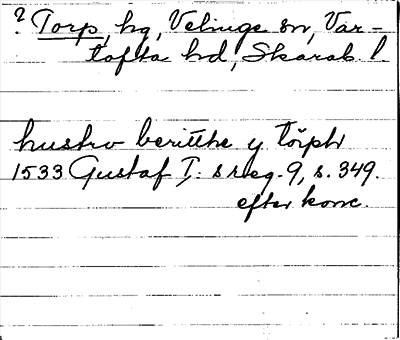 ? Torp, hg, Velinge sn, Var-
tofta hd, Skarab. l.
hustrv beritthe y törph
1533 Gustaf I: s reg. 9, s. 349.
efter konc.